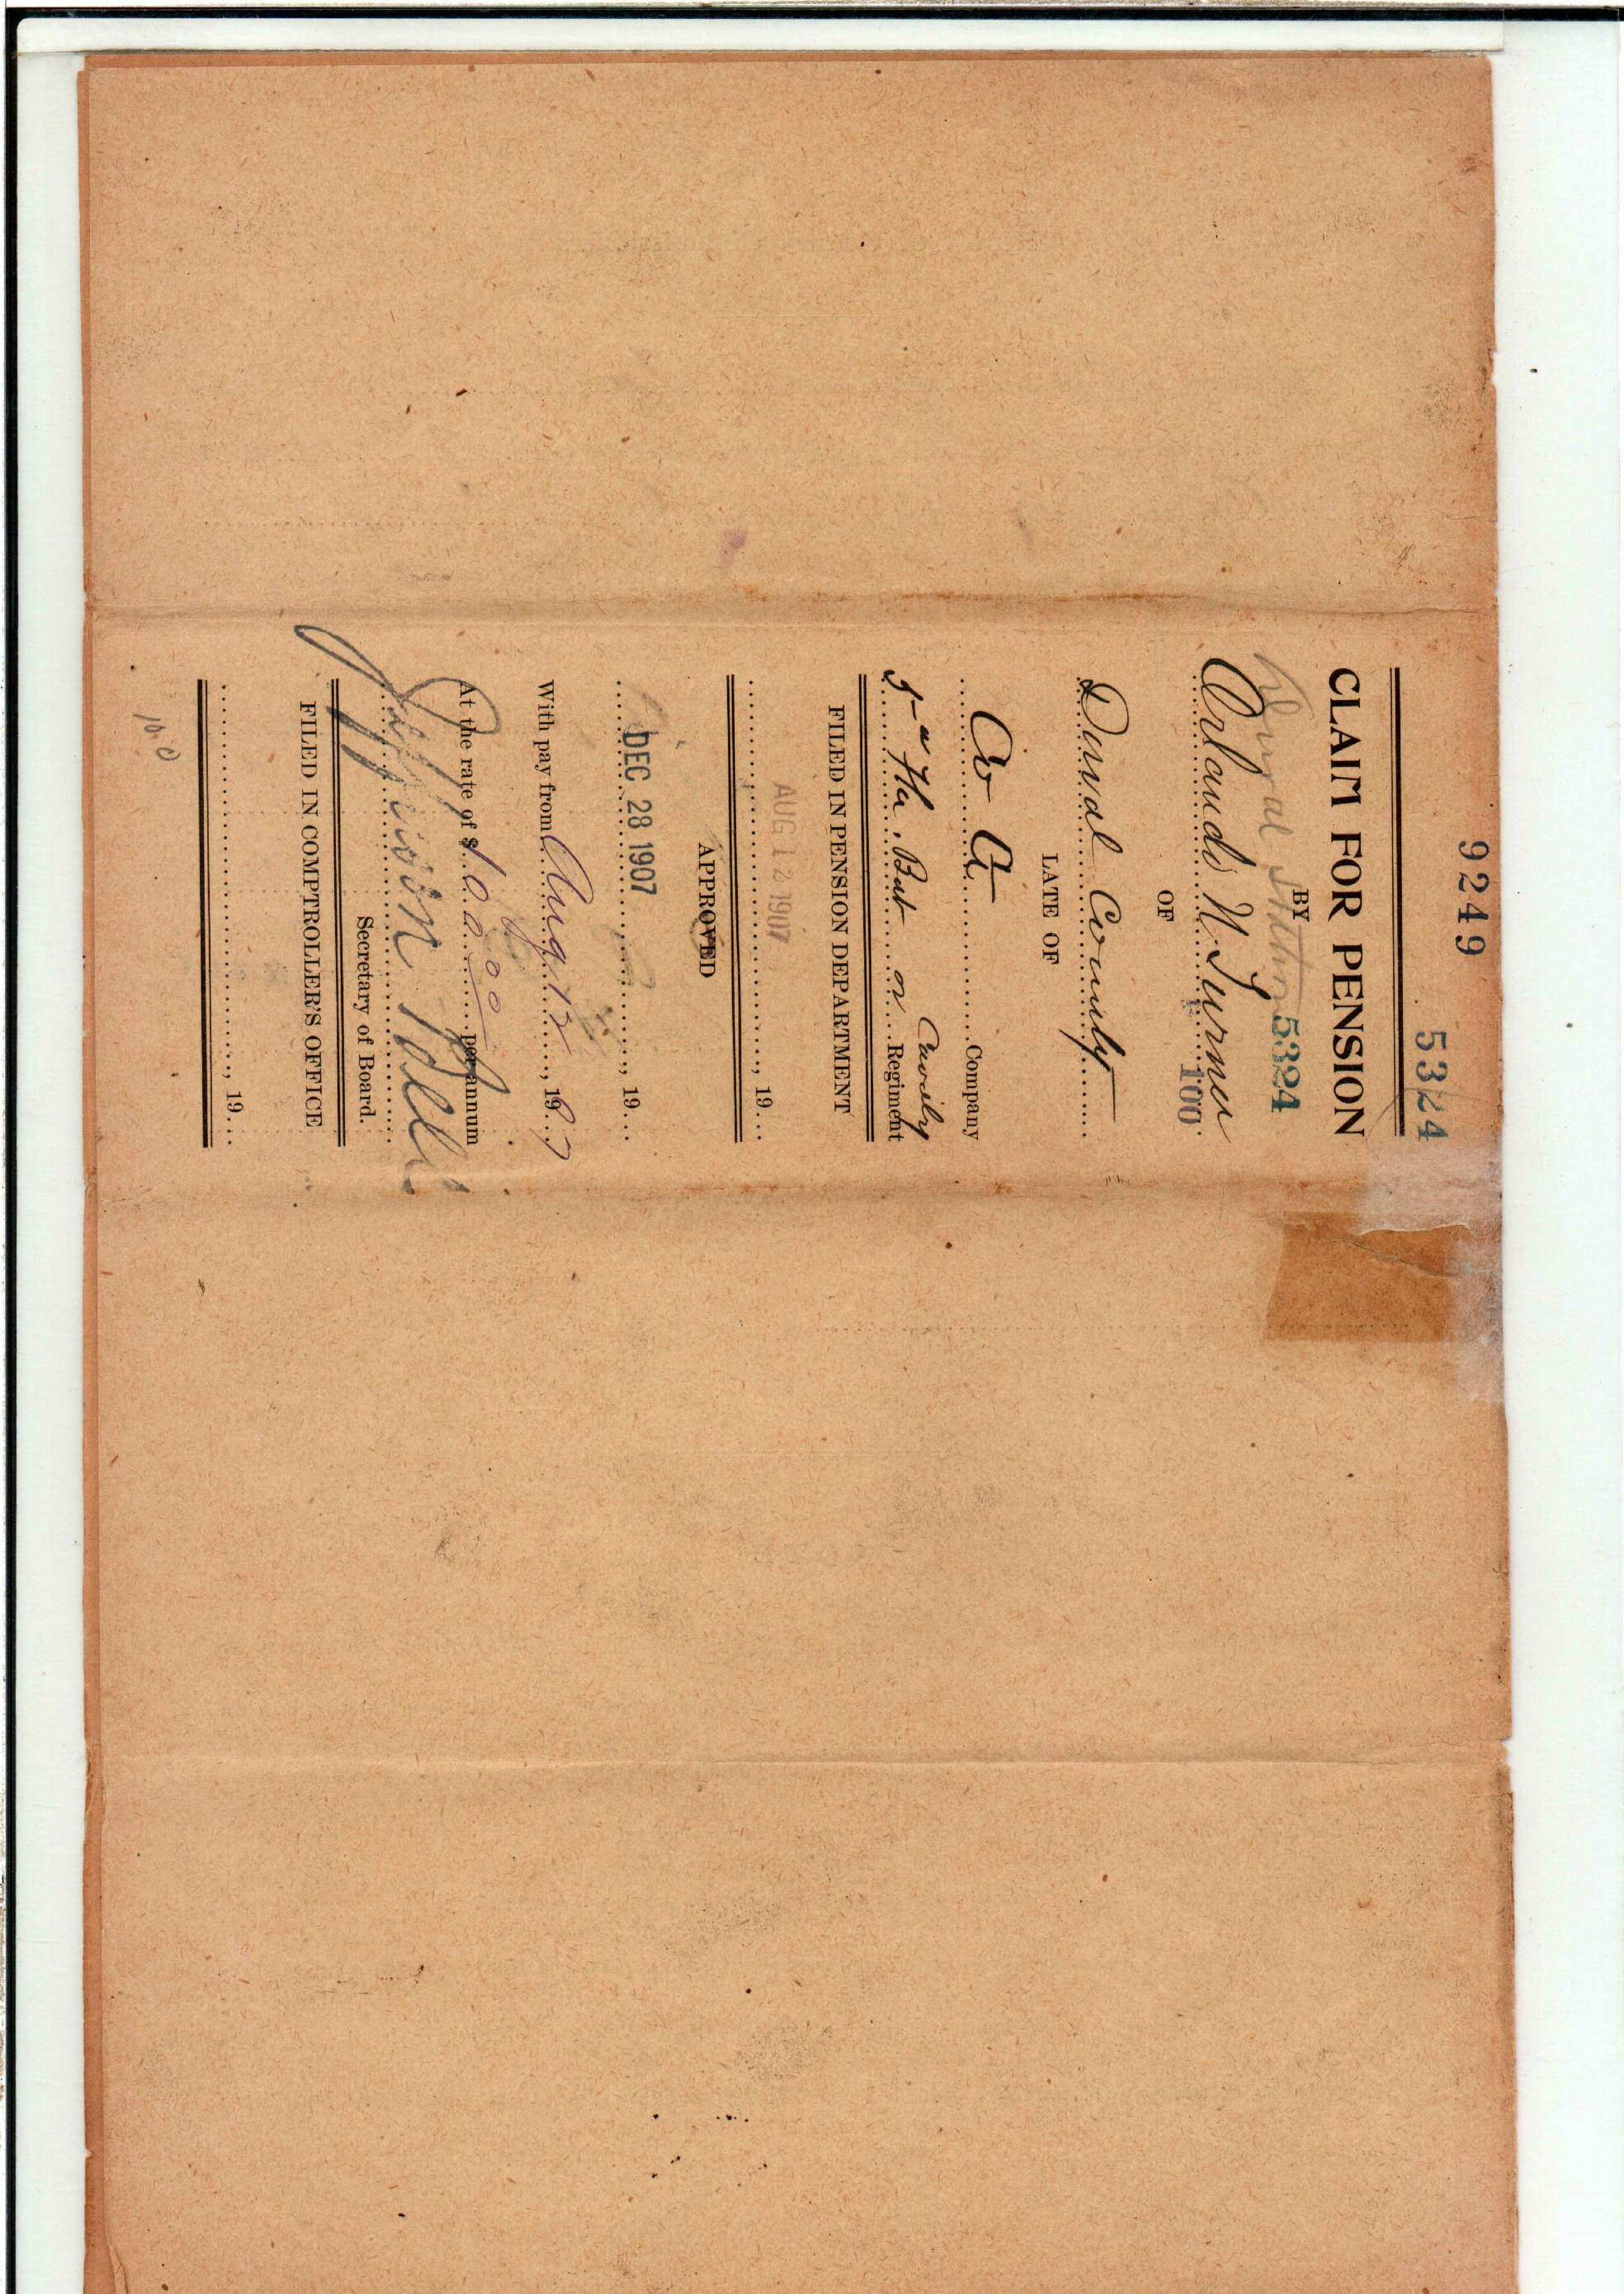 9249
5324
CLAIM FOR PENSION
BY
5324
Orlando N. Turner
100
OF
Duval County
LATE OF
Co A Company
Cavalry
5" Fla. Bat or Regiment
FILED IN PENSION DEPARTMENT
AUG 12 1907
, 19
APPROVED
DEC 28 1907 , 19
With pay from Aug 12 , 1907
At the rate of $ 100.00 per annum
Jefferson Bell
Secretary of Board.
FILED IN COMPTROLLER'S OFFICE
, 19